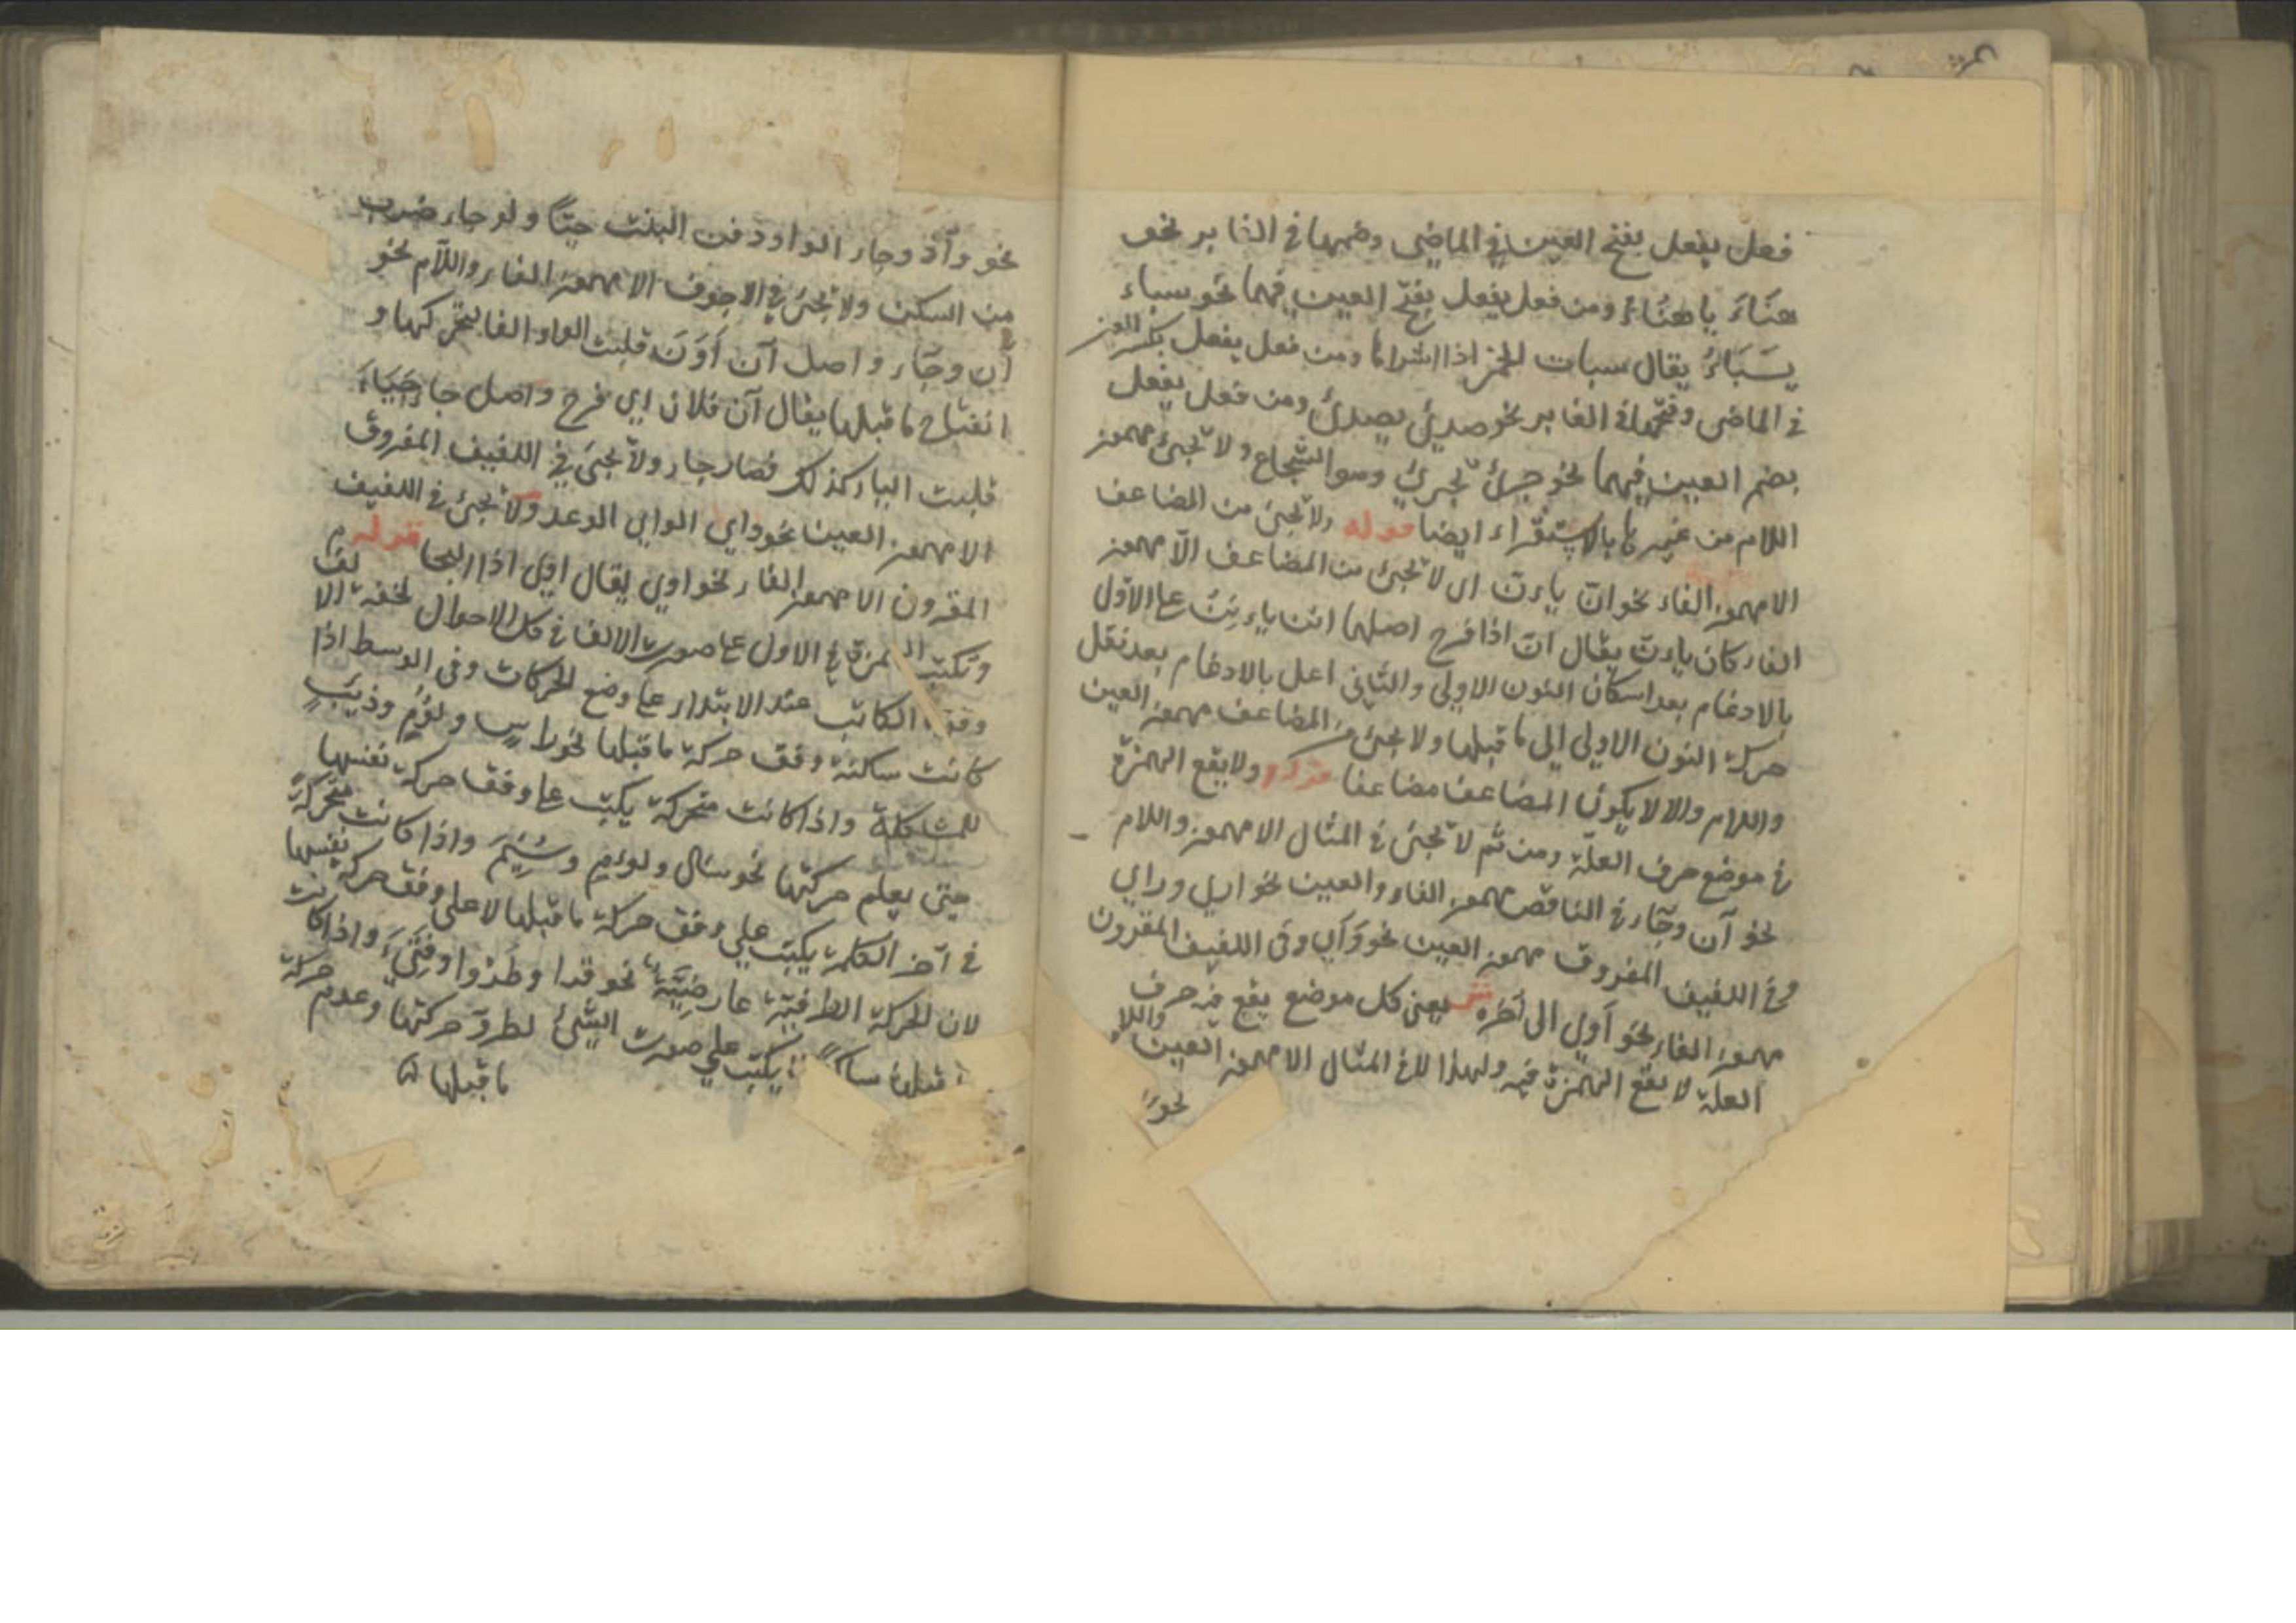 فعل يفعل بفتح العين في الماضي وضمها في الغابر نحو
هنَاءَ ياهنُاءُ ومن فعل يفعل بفتح العين فيهما نحو سباء
يسَبَاءُ يقال سبات الخمر اذا اشتراها ومن فعل يفعل بكسر العين
في الماضي وفتحها في الغابر نحو صدئ يصدئ ومن فعل يفعل
بضم العين فيهما نحو جرئ يجرئ وهو الشجاع ولا تجئ مهموز
اللام من غيرها بالاستقراء ايضا قوله ولا تجئ من المضاعف
الا مهموز الفاء نحو انّ يانّ اي لا تجئ من المضاعف الّا مهموز
الفاء كان يانّ يقال انّ اذا فرح اصلها انن ياءنن على الاول
بالادغام بعد اسكان النون الاولى والثاني اعل بالادغام بعد نقل
حركة النون الاولى الى ما قبلها ولا تجئ من المضاعف مهموز العين
واللام والا لا يكون المضاعف مضاعفا قوله ولا يقع الهمزة
في موضع حرف العلة ومن ثم لا تجئ في المثال الا مهموز واللام
نحو آن وجاء في الناقص مهموز الفاء والعين نحو اري وراي
وفي اللفيف المفروق مهموز العين نحو وَأَي وفي اللفيف المقرون
مهموز الفاء نحو أَوي الى آخره ش يعني كل موضع يقع فيه حرف
العلة لا يقع الهمزة فيه ولهذا لا في المثال الا مهموز العين واللام
نحو
نحو وآد وجاء الواو دفن البنت حيّا ولو جاء ضرب
من السكن ولا تجئ في الاجوف الا مهموز الفاء واللام نحو
آن وجاء واصل آن أَوَنَ قلبت الواو الفا لتحركها و
انفتاح ما قبلها يقال آن فلان اي فرح واصل جاء جَيَاءَ
قلبت الياء كذلك فصار جاء ولا تجئ في اللفيف المفروق
الا مهموز العين نحو واي الواي الوعد ولا تجئ في اللفيف
المقرون الا مهموز الفاء نحو اوي يقال اوي اذا التجا قوله م
وتكتب الهمزة في الاول على صورت الالف في كل الاحوال لخفة الالف
وقوة الكاتب عند الابتداء على وضع الحركات وفي الوسط اذا
كانت ساكنة وفق حركة ما قبلها نحو راس ولؤم وذئب
للمشاكلة واذا كانت متحركة يكتب على وفق حركة نفسها
حتى يعلم حركتها نحو سال ولوءم وسُئِمَ واذا كانت متحركة
في آخر الكلمة يكتب على وفق حركة ما قبلها لا على وفق حركة نفسها
لان الحركة الطرفية عارضيّة نحو قرا وطرؤا وفتئ واذا كانت
ما قبلها ساكنا يكتب على صورت الشئ لطرو حركتها وعدم حركة
ما قبلها